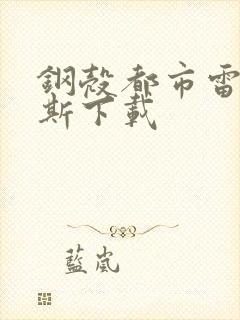 鋼殼都市雷
斯下載
藍嵐